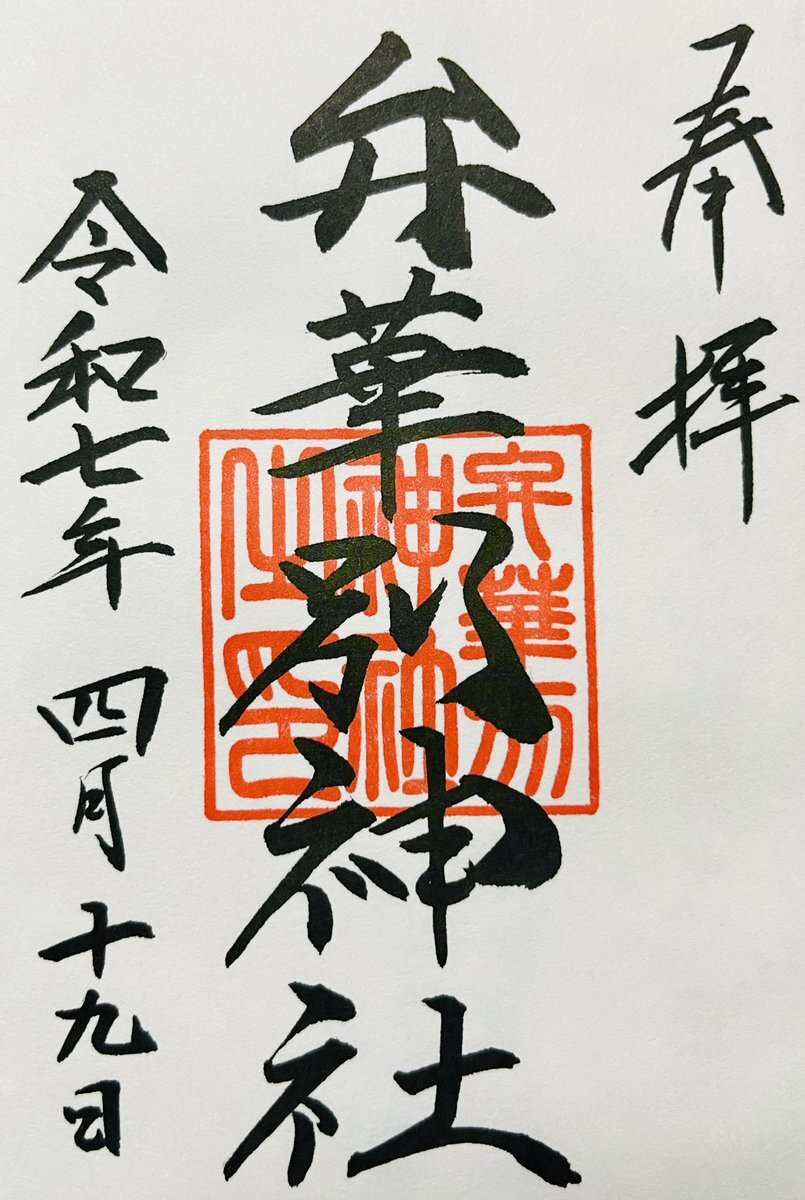 奉拝
弁華別神社
弁華別
神社
之印
令和七年 四月 十九日